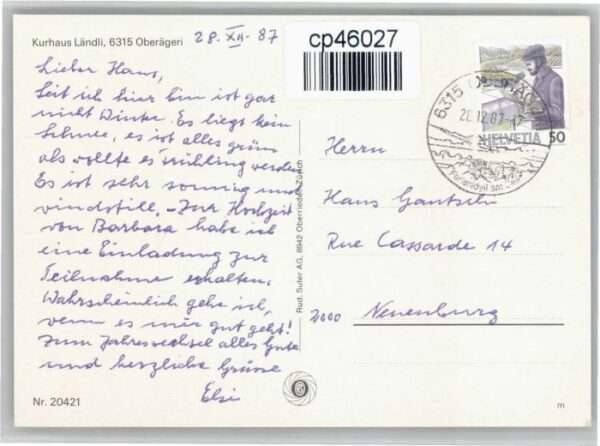 Kurhaus Ländli, 6315 Oberägeri
28. XII. 87
cp46027
Lieber Hans,
Seit ich hier bin ist gar
nicht Winter. Es liegt kein
Schnee, es ist alles grün
als wollte es Frühling werden.
Es ist sehr sonnig und
windstill. Zur Hochzeit
von Barbara habe ich
eine Einladung zur
Teilnahme erhalten.
Wahrscheinlich gehe ich,
wenn es mir gut geht!
Zum Jahreswechsel alles Gute
und herzliche Grüsse
Elsi
Nr. 20421
Rud. Suter AG, 8942 Oberrieden-Zürich
6315
12.87
HELVETIA 50
Herrn
Hans Gantschi
Rue Cassarde 14
2000 Neuenburg
m